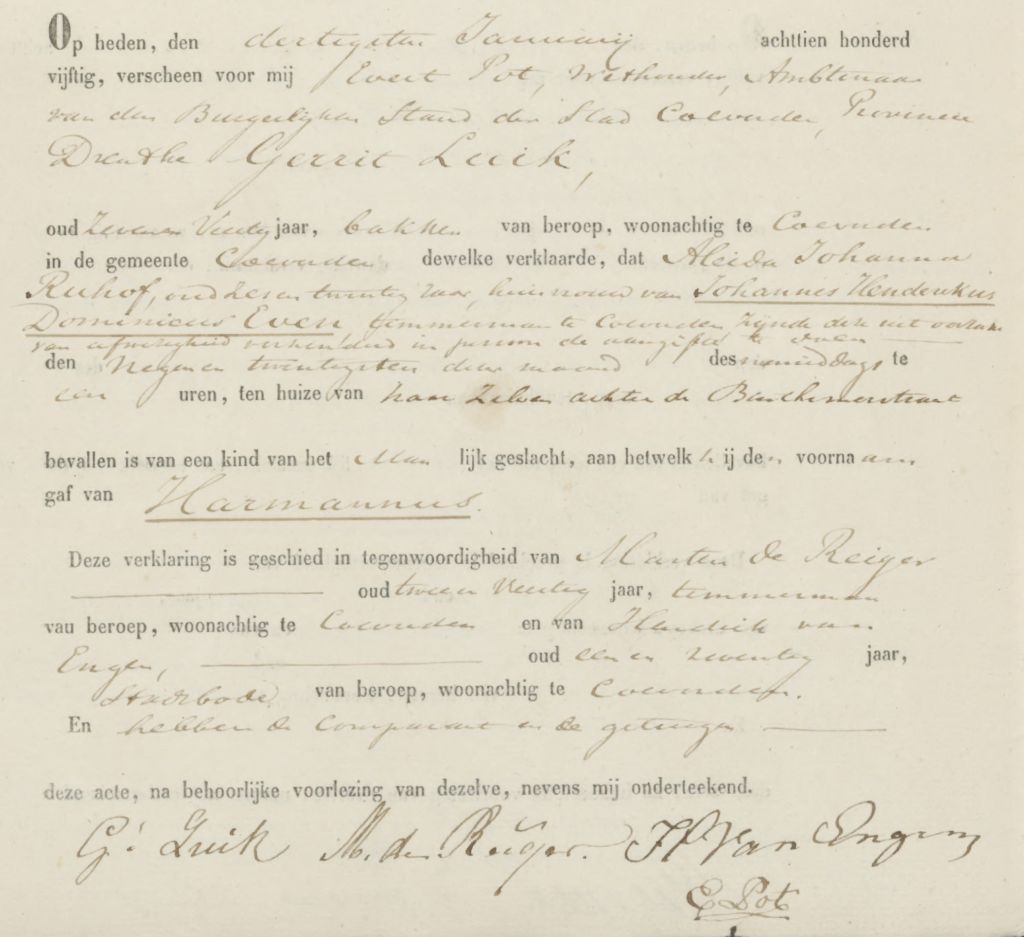 Op heden, den dertigsten Januarij achttien honderd
vijftig, verscheen voor mij Evert Pot, Wethouder, Ambtenaar
van den Burgerlijken Stand der Stad Coevorden, Provincie
Drenthe Gerrit Luik,
oud Zeven en Veertig jaar, bakker van beroep, woonachtig te Coevorden
in de gemeente Coevorden dewelke verklaarde, dat Aleida Johanna
Ruhof, oud Zes en twintig Jaar, huisvrouw van Johannes Hendrikus
Dominicus Even, timmerman te Coevorden, zijnde deze uit oorzake
van afwezigheid verhinderd in persoon de aangifte te doen
den Negen en twintigsten dezer maand des namiddags te
een uren, ten huize van haar Zelven achter de
bevallen is van een kind van het Man lijk geslacht, aan hetwelk hij den voornaam
gaf van Harmannus.
Deze verklaring is geschied in tegenwoordigheid van Marten de Reiger
oud twee en Veertig jaar, timmerman
van beroep, woonachtig te Coevorden en van Hendrik van
Engen, oud een en zeventig jaar,
Stadsbode van beroep, woonachtig te Coevorden.
En hebben de Comparant en de getuigen
deze acte, na behoorlijke voorlezing van dezelve, nevens mij onderteekend.
G. Luik M. de Reiger. H Van Engen
E Pot